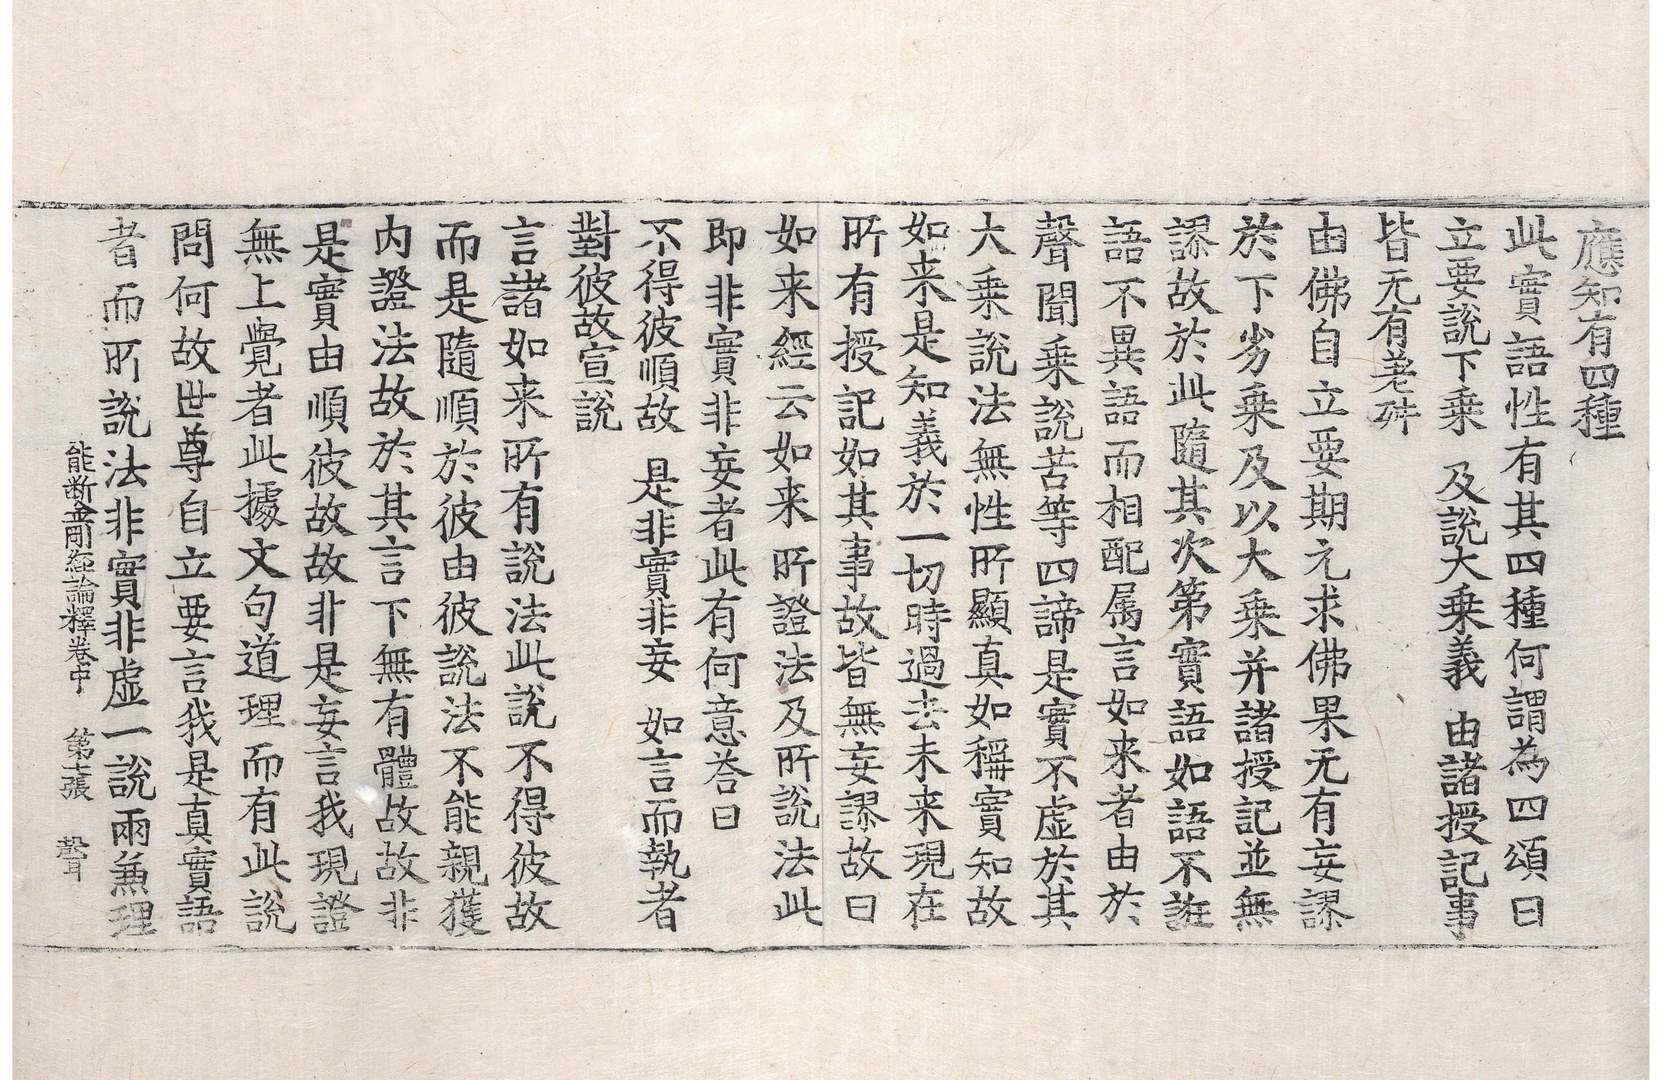 應知有四種
此實語性有其四種何謂為四頌曰
立要說下乗 及說大乗義 由諸授記事
皆无有差舛
由佛自立要期元求佛果无有妄謬
於下劣乗及以大乗并諸授記並無
謬故於此隨其次第實語如語不誑
語不異語而相配属言如来者由於
聲聞乗說苦等四諦是實不虛於其
大乗說法無性所顯真如稱實知故
如来是知義於一切時過去未来現在
所有授記如其事故皆無妄謬故曰
如来經云如来所證法及所說法此
即非實非妄者此有何意荅曰
不得彼順故 是非實非妄 如言而執者
對彼故宣說
言諸如来所有說法此說不得彼故
而是隨順於彼由彼說法不能親獲
内證法故於其言下無有體故故非
是實由順彼故故非是妄言我現證
無上覺者此據文句道理而有此說
問何故世尊自立要言我是真實語
者而所說法非實非虛一說兩兼理
能断金剛經論釋卷中 第七張 聲